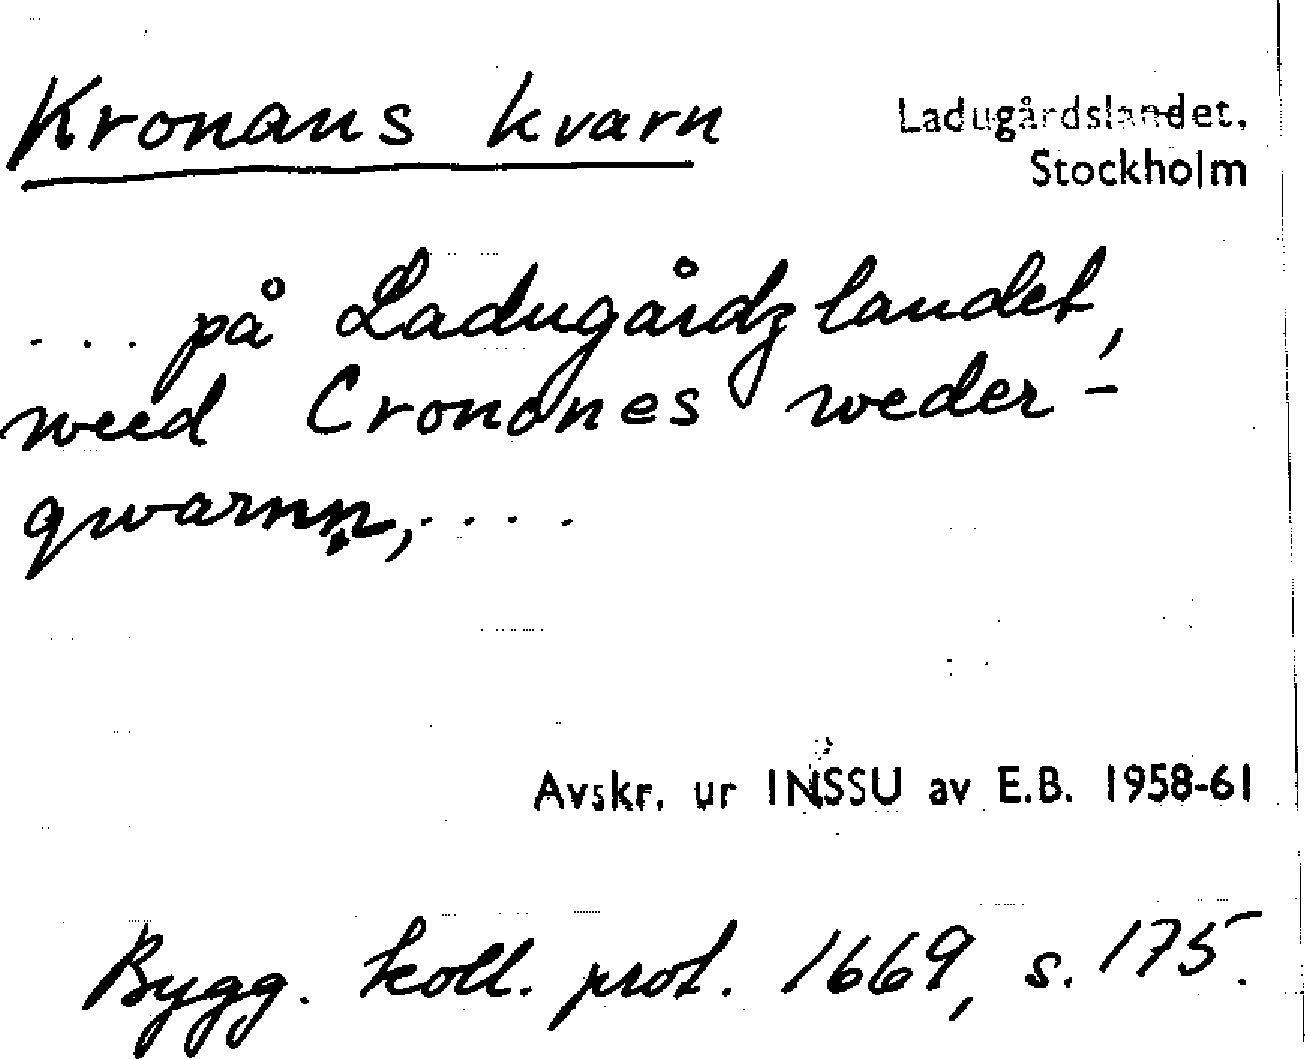 Kronans kvarn
Ladugårdslandet,
Stockholm
... på Ladugårdzlandet,
weed Cronones weder-
qwarnn, ....
Avskr. ur INSSU av E.B. 1958-61
Bygg. koll. prot. 1669, s. 175.